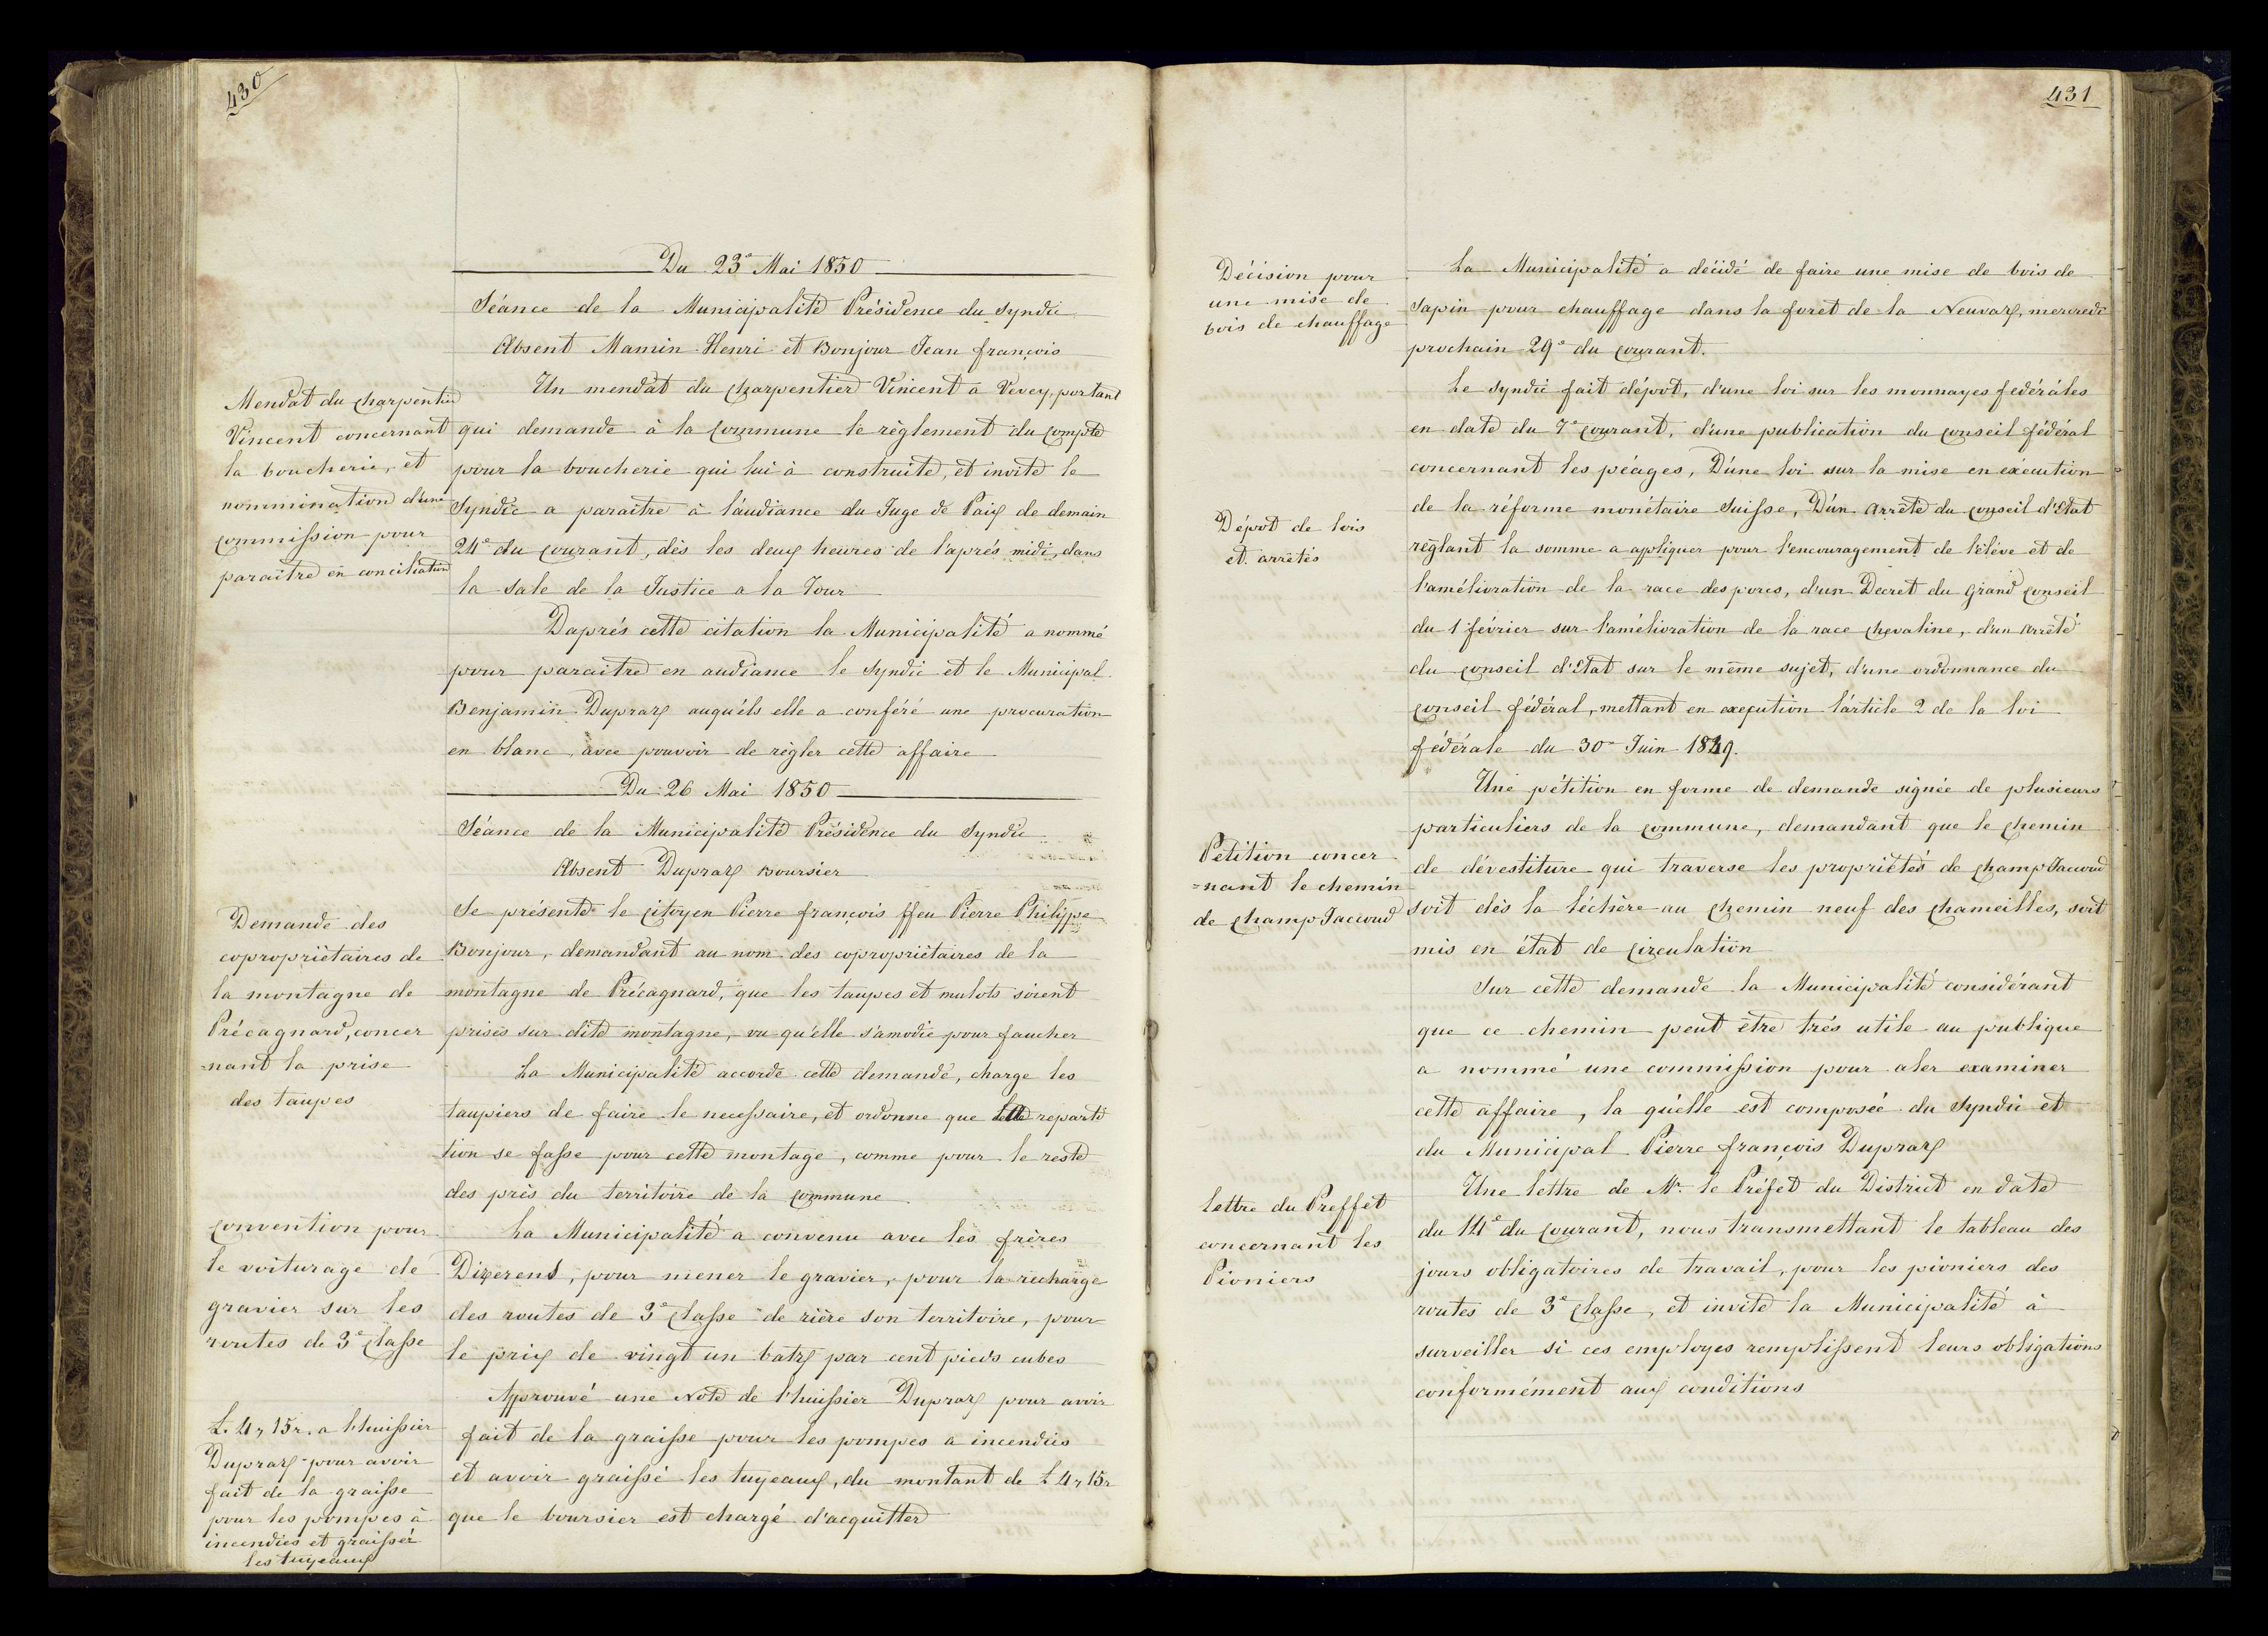 430
Du 23e Mai 1850
Séance de la Municipalité Présidence du Syndic
Absent Mamin Henri et Bonjour Jean françois
Mendat du charpentier
Vincent concernant
la boucherie, et
nommination d'une
commission pour
paraître en conciliation
Un mendat du charpentier Vincent à Vevey, portant
qui demande à la commune le règlement du compte
pour la boucherie qui lui à construite, et invite le
Syndic a paraître à l'audiance du Juge de Paix de demain
24e du courant, dès les deux heures de l'aprés midi, dans
la sale de la Justice a la Tour
Daprés cette citation la Municipalité a nommé
pour paraitre en audiance le Syndic et le Municipal
Benjamin Dupraz auquéls elle a conféré une procuration
en blanc, avec pouvoir de règler cette affaire
Du 26 Mai 1850
Séance de la Municipalité Présidence du Syndic
Absent Dupraz Boursier
Demande des
copropriètaires de
la montagne de
Précagnard, concer
=nant la prise
des taupes
Se présente le citoyen Pierre françois ffeu Pierre Philippe
Bonjour, demandant au nom des copropriètaires de la
montagne de Précagnard, que les taupes et mulots soient
prises sur dite montagne, vu qu'elle s'amodie pour faucher
La Municipalité accorde cette demande, charge les
taupiers de faire le necessaire, et ordonne que reparti
tion se fasse pour cette montage, comme pour le reste
des près du territoire de la commune
convention pour
le voiturage de
gravier sur les
routes de 3e classe
La Municipalité a convenu avec les frères
Dizerens, pour mener le gravier, pour la recharge
des routes de 3e classe de rière son territoire, pour
le prix de vingt un batz par cent pieds cubes
L. 4, 15r. a l'huissier
Dupraz pour avoir
fait de la graisse
pour les pompes à
incendies et graisser
les tuyeaux
Approuvé une Note de l'huissier Dupraz pour avoir
fait de la graisse pour les pompes a incendies
et avoir graissé les tuyeaux, du montant de L 4, 15r
que le boursier est chargé d'acquitter
431
Décision pour
une mise de
bois de chauffage
La Municipalité a décidé de faire une mise de bois de
Sapin pour chauffage dans la foret de la Neuvaz, mercredi
prochain 29e du courant.
Dépot de lois
et arrêtés
Le Syndic fait dépot, d'une loi sur les monnayes fedéráles
en date du 7e courant, d'une publication du conseil fédéral
concernant les péages, D'úne loi sur la mise en exécution
de la réforme monétaire Suisse, D'ún Arrêté du conseil d'Etat
règlant la somme a appliquer pour l'encouragement de l'élève et de
l'amélioration de la race des porcs, d'un Decret du Grand conseil
du 1 février sur l'amélioration de la race chevaline, d'un Arrêté
du conseil d'Etat sur le même sujet, d'une ordonnance du
conseil fédéral, mettant en execution l'article 2 de la loi
fédérale du 30e Juin 1849.
Petition concer
=nant le chemin
de champ Jaccoud
Une pétition en forme de demande signée de plusieurs
particuliers de la commune, demandant que le chemin
de dévestiture qui traverse les propriètés de champ Jaccoud
soit dès la léchère au chemin neuf des chameilles, soit
mis en état de circulation
Sur cette demande la Municipalité considérant
que ce chemin peut être trés utile au publique
a nommé une commission pour aler examiner
cette affaire, la quélle est composée du Syndic et
du Municipal Pierre françois Dupraz
lettre du Preffet
concernant les
Pioniers
Une lettre de Mr. le Préfet du District en date
du 14e du courant, nous transmettant le tableau des
jours obligatoires de travail, pour les pioniers des
routes de 3e classe, et invite la Municipalité à
surveiller si ces employes remplissent leurs obligations
conformément aux conditions